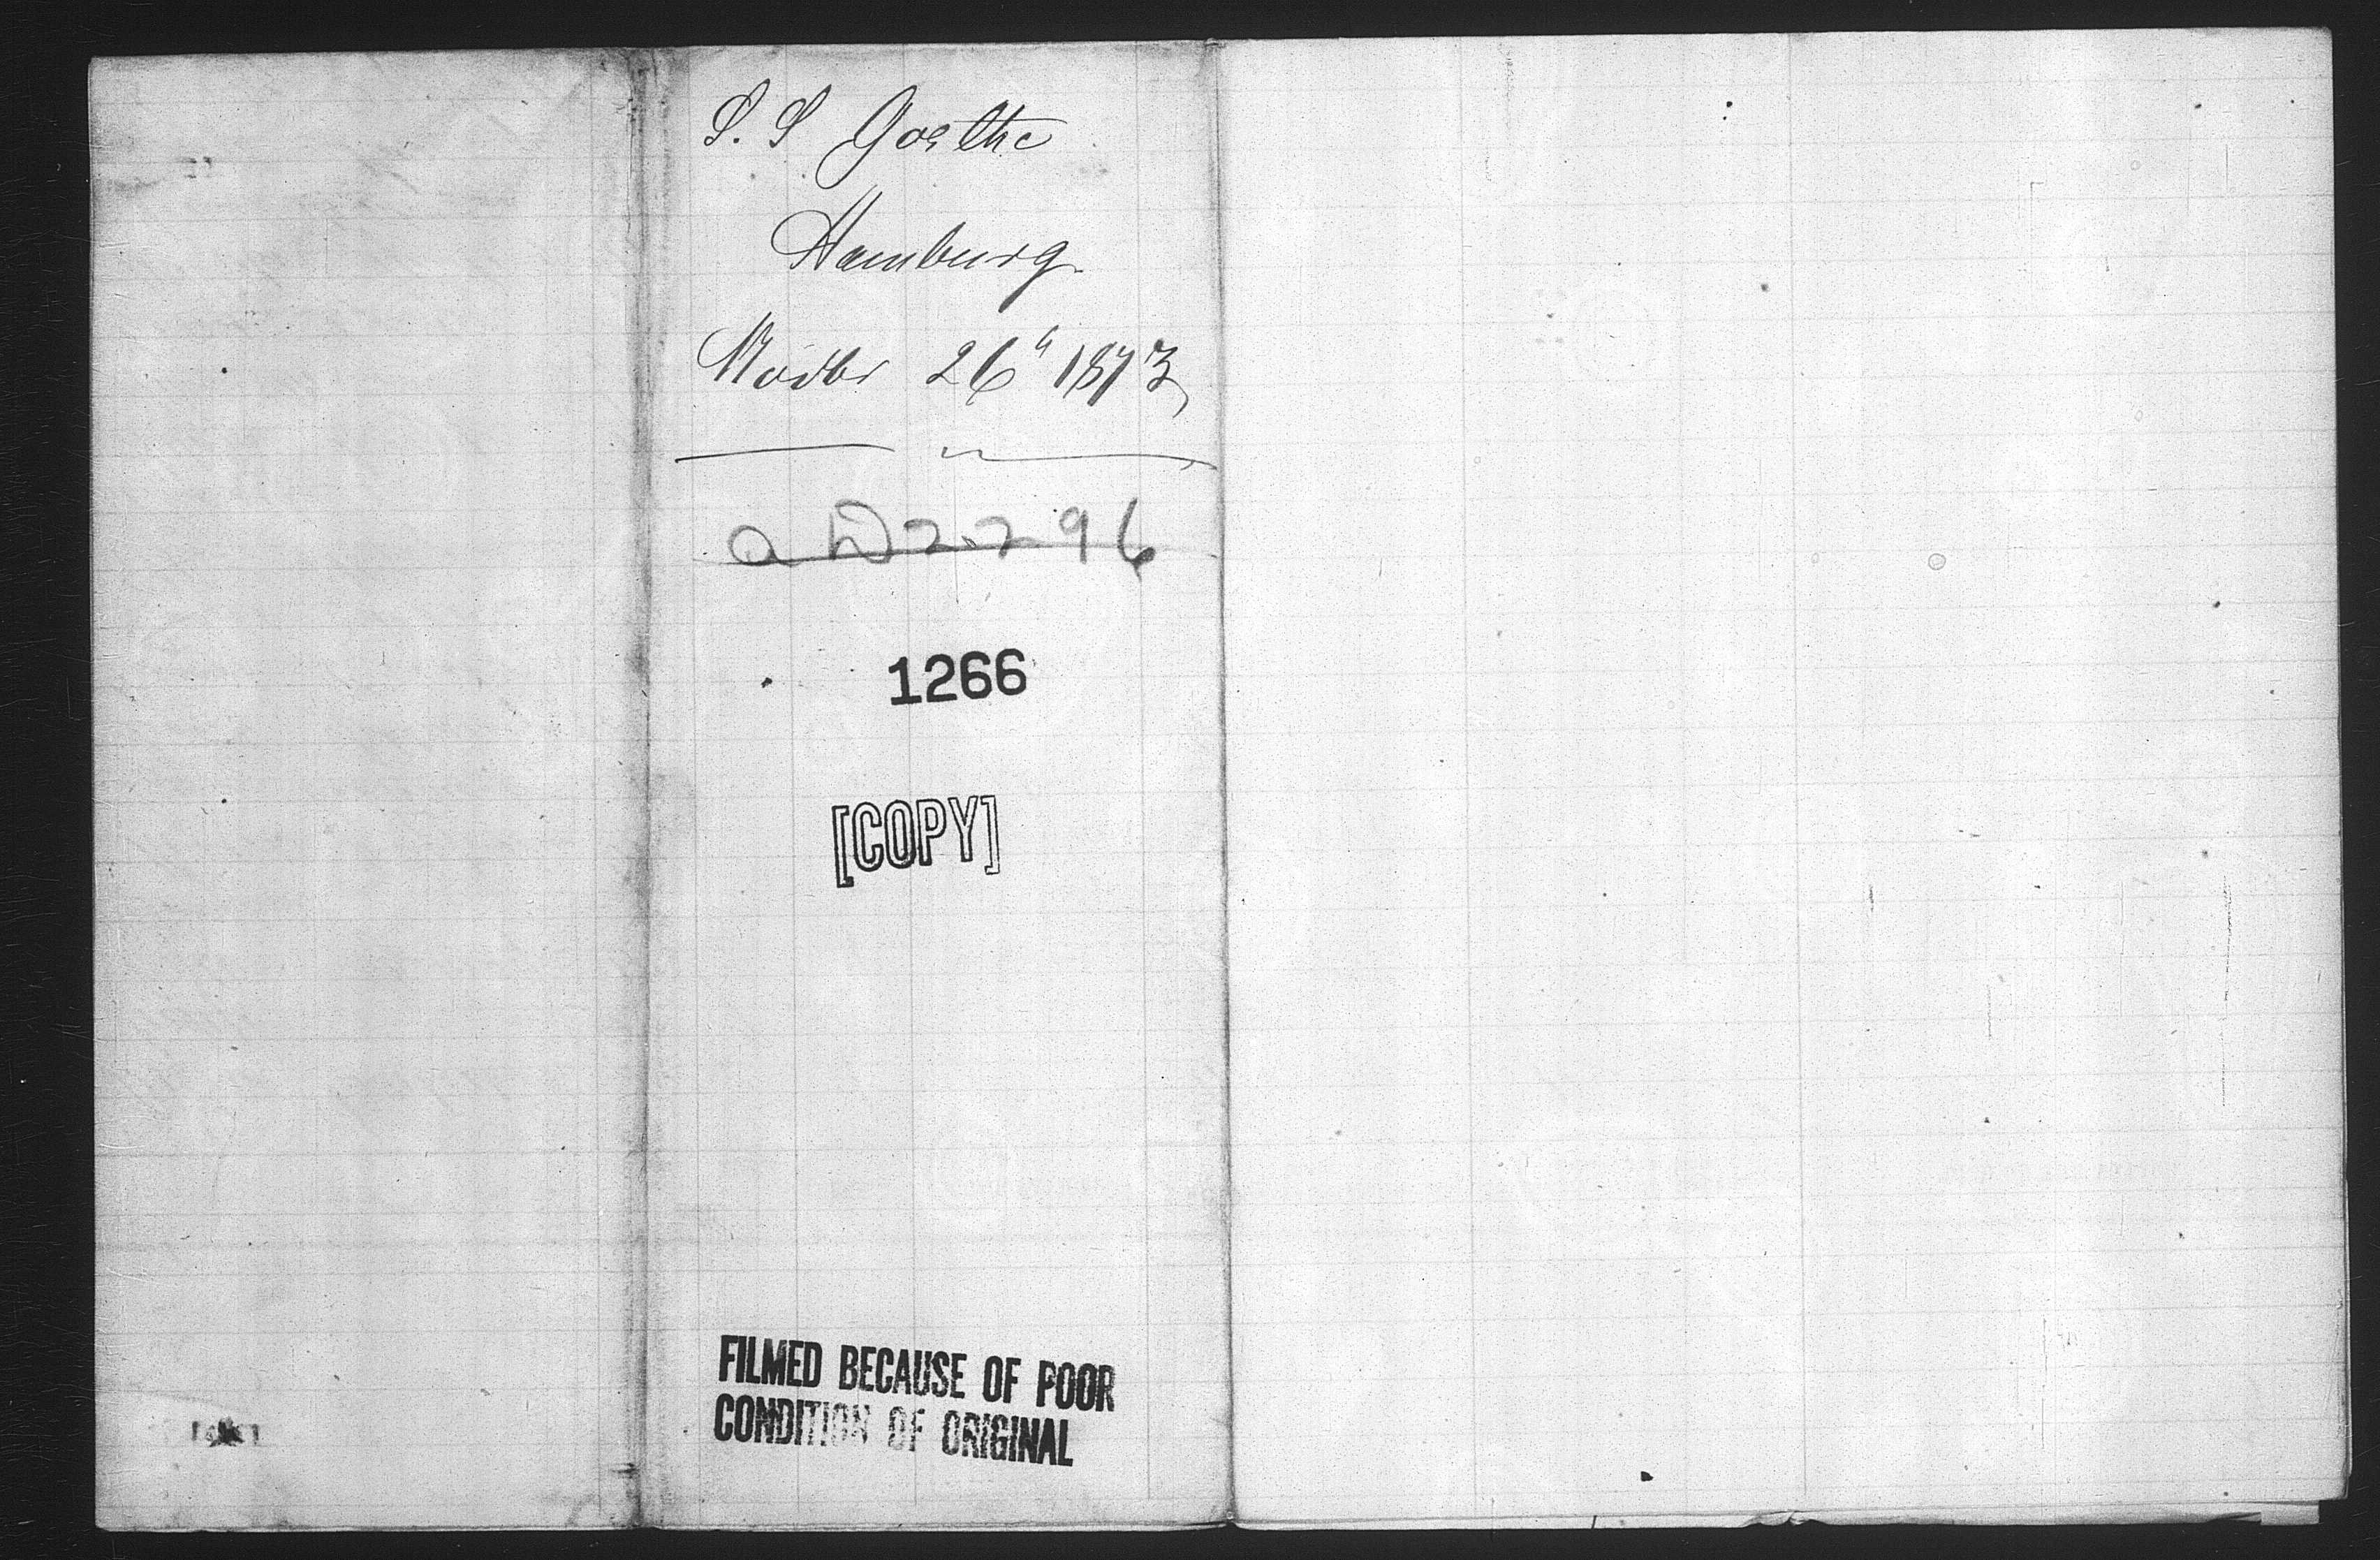 S. S Goethe
Hamburg
Novbr 26" 1873
1266
[COPY]
FILMED BECAUSE OF POOR
CONDITION OF ORIGINAL